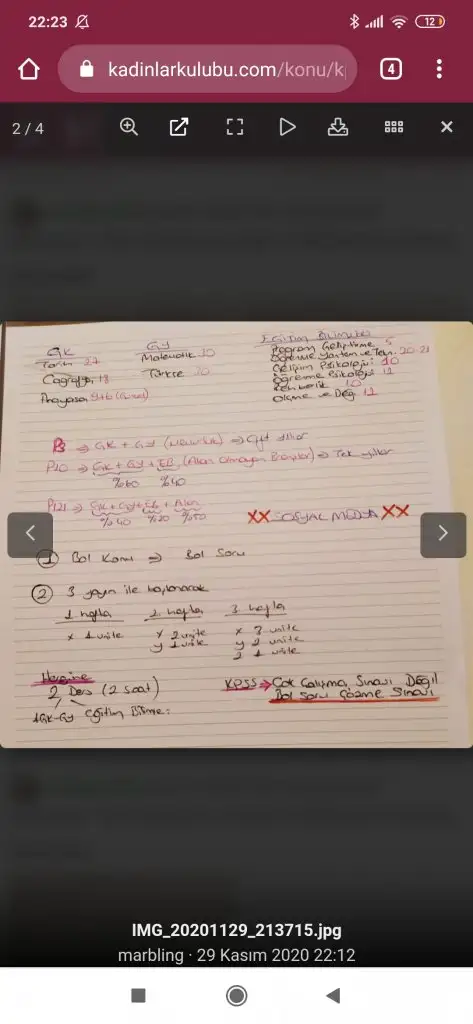 22:23
12
kadinlarkulubu.com/konu/k
4
2 / 4
GK
Tarih 27
Coğrafya 18
Anayasa 9+6 (Güncel)
GY
Matematik 30
Türkçe 30
Eğitim Bilimleri
Program Geliştirme 5
Öğrenme Yöntem ve Tek. 20-21
Gelişim Psikolojisi 10
Öğrenme Psikolojisi 11
Rehberlik 10
Ölçme ve Değ. 12
P3 => GK + GY => Çift yıllar
P10 => GK + GY + EB (Alan Olmayan Branşlar) => Tek yıllar
%60 %40
P121 => GK + GY + EB + Alan
%40 %20
XX SOSYAL MEDYA XX
① Bol Konu => Bol Soru
② 3 yayın ile
1 hafta 2. hafta 3. hafta
x 1 ünite x 2 ünite x 3 ünite
y 1 ünite y 2 ünite
2 1 ünite
2 Ders (2 saat)
GK-GY Eğitim
KPSS → Çok Çalışma Sınavı Değil
Bol Soru Çözme Sınavı
IMG_20201129_213715.jpg
marbling · 29 Kasım 2020 22:12